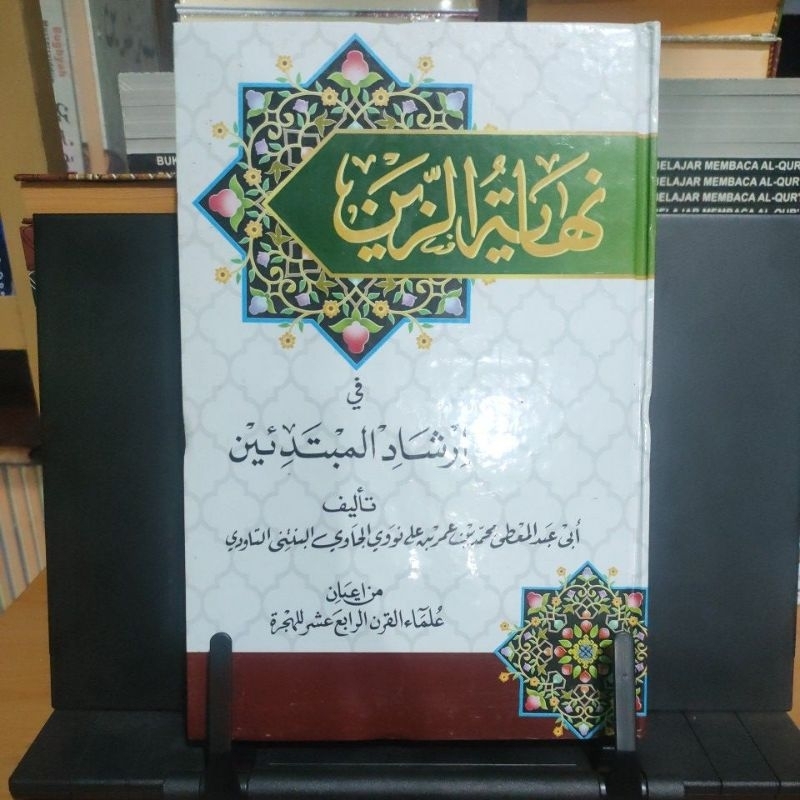 نهاية الزين
في
إرشاد المبتدئين
تأليف
أبي عبد المعطي محمد بن عمر بن علي نووي الجاوي البنتني التناري
من أعيان
علماء القرن الرابع عشر للهجرة
BUK
BELAJAR MEMBACA AL-QUR'
BELAJAR MEMBACA AL-QUR'
BELAJAR MEMBACA AL-QUR'
BELAJAR MEMBACA AL-QUR'